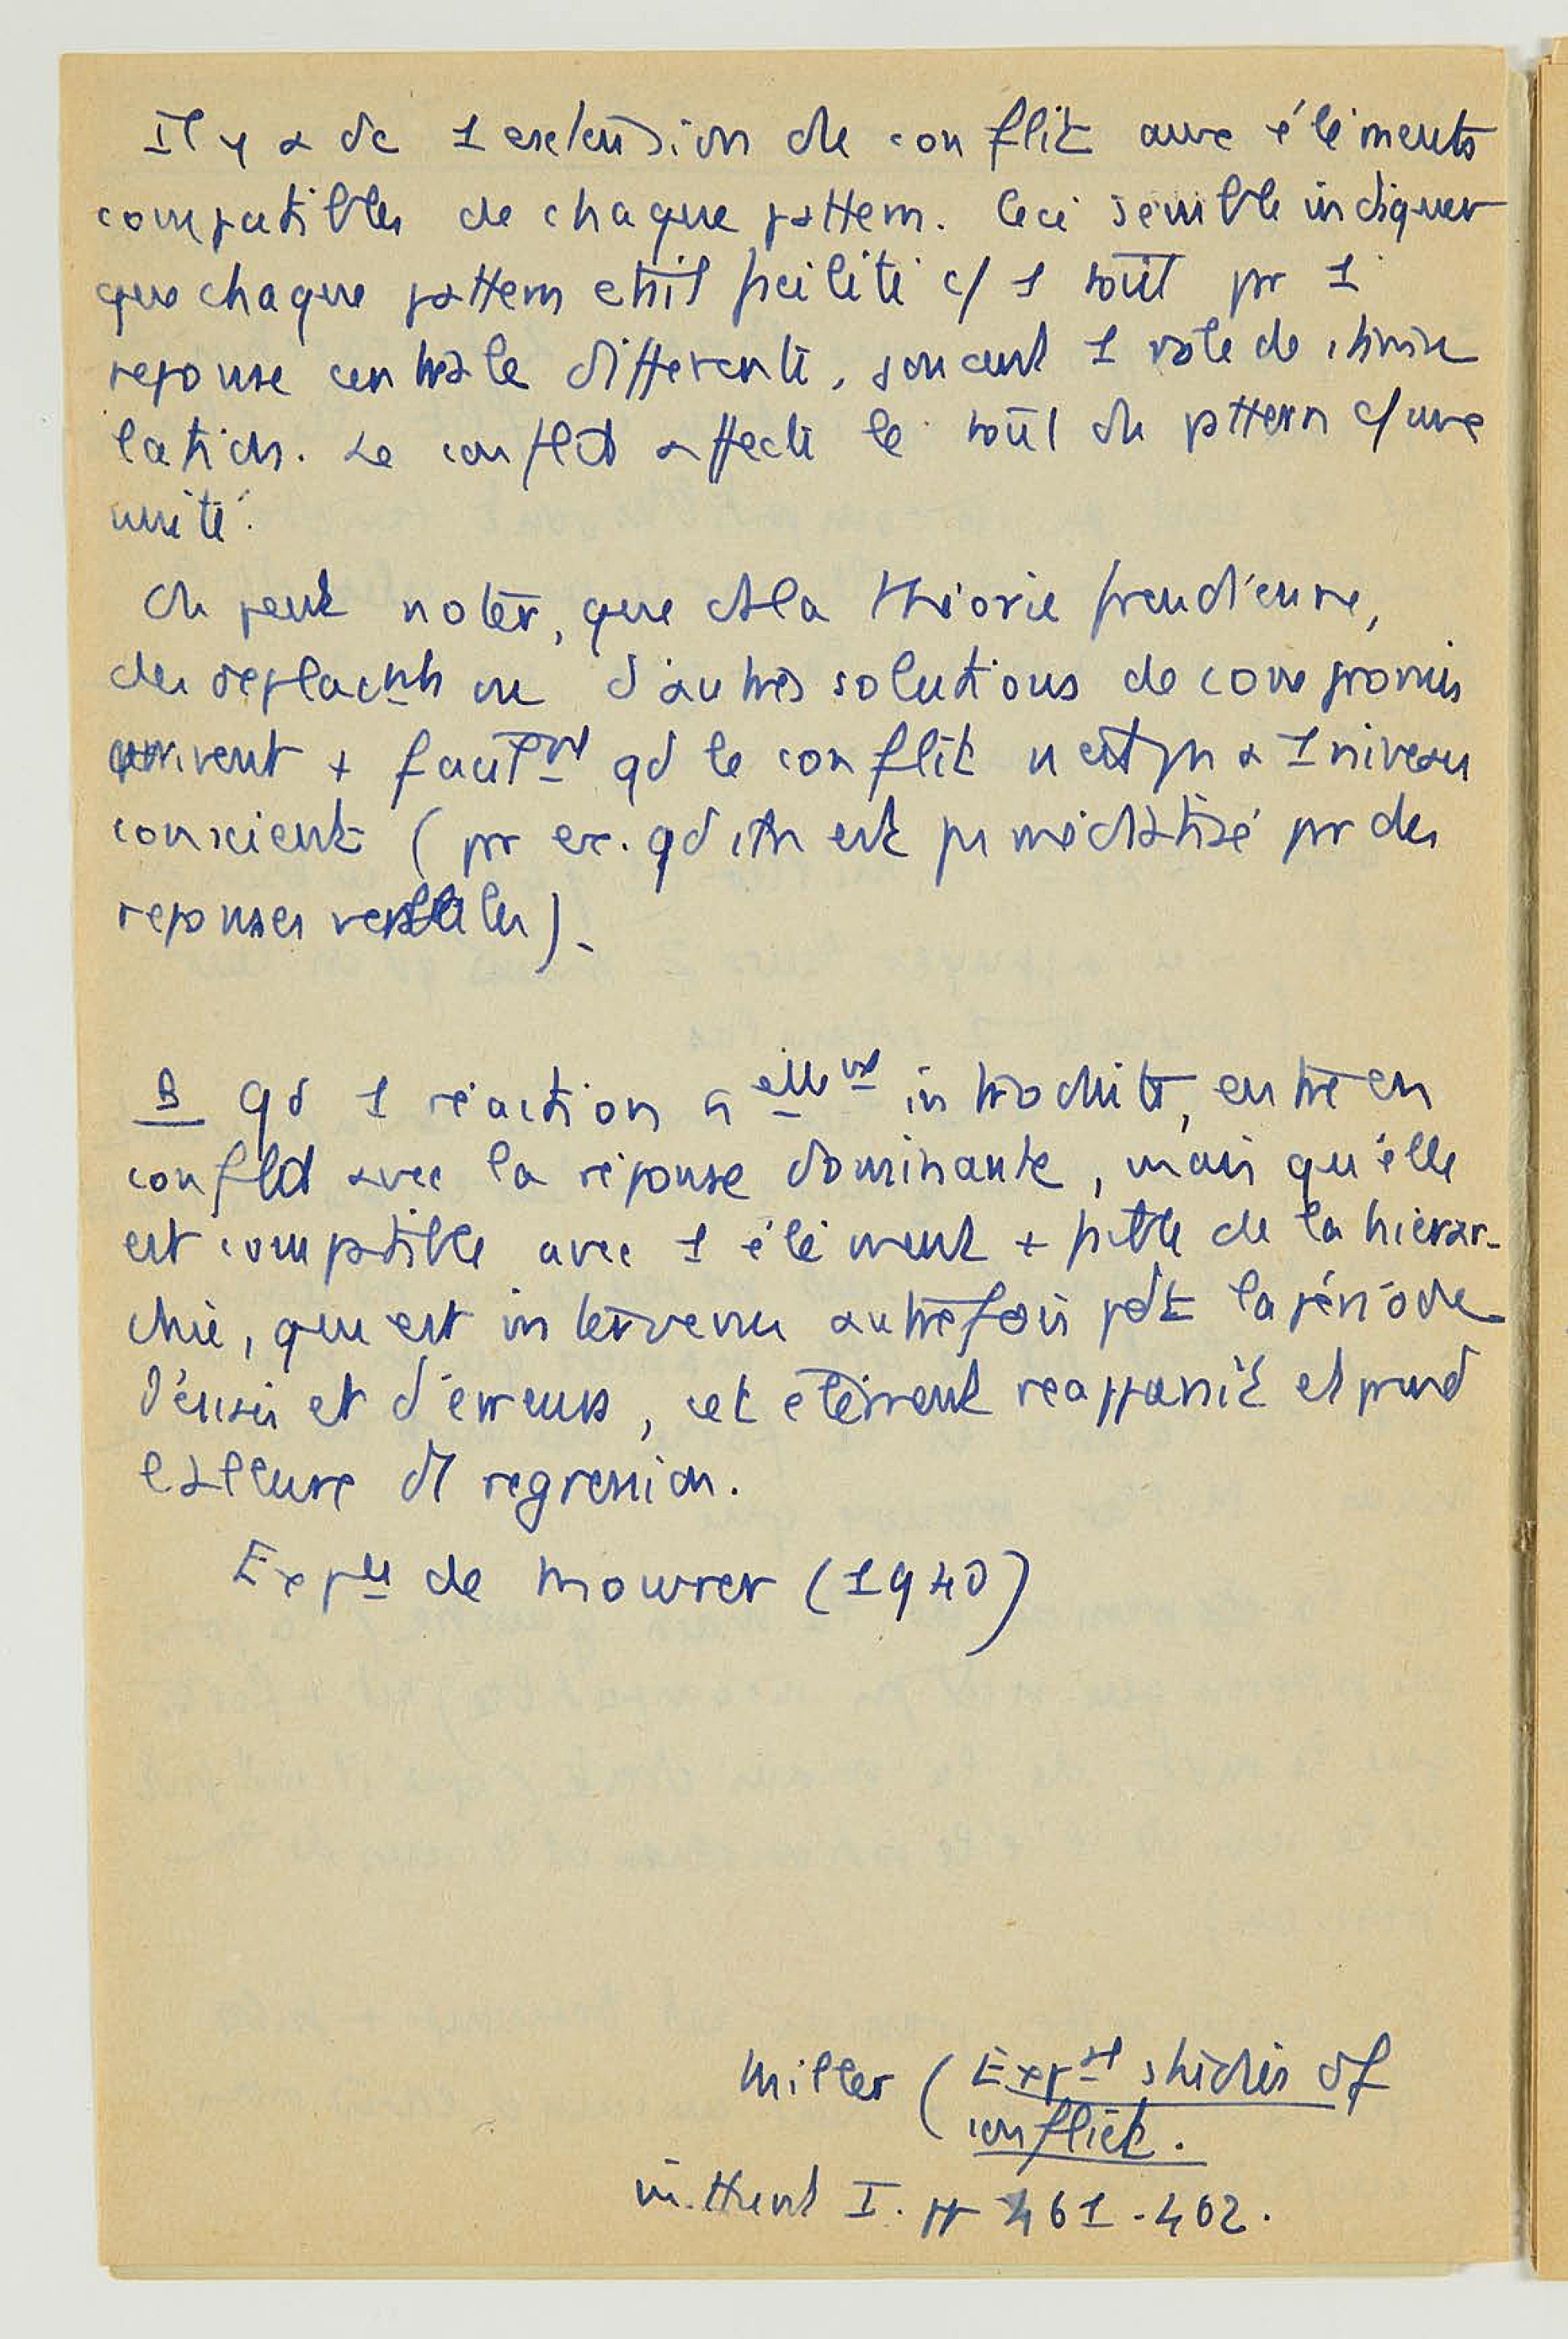 Il y a dc 1 extension du conflit aux éléments
compatibles de chaque pattern. Ceci semble indiquer
que chaque pattern était facilité c/ 1 tout par 1
reponse centrale differente, jouant 1 rôle de stimu
lation. Le conflit affecte le tout du pattern c/ une
unité.
On peut noter, que ds la théorie freudienne,
des deplacnts ou d'autres solutions de compromis
arrivent + facilemt qd le conflit n'est ps a 1 niveau
conscient (pr ex. qd itn est ps médiatisé pr des
reponses verbales).
B qd 1 réaction nellemt introduite, entre en
conflit avec la réponse dominante, mais qu'elle
est compatible avec 1 élément + faible de la hierar-
chie, qui est intervenu autrefois pdt la période
d'essais et d'erreurs, cet élément reapparait et prend
l'allure d'1 regression.
Expce de Mowrer (1940)
Miller (Exptal studies of
conflict.
in Hunt I. pp 461-462.